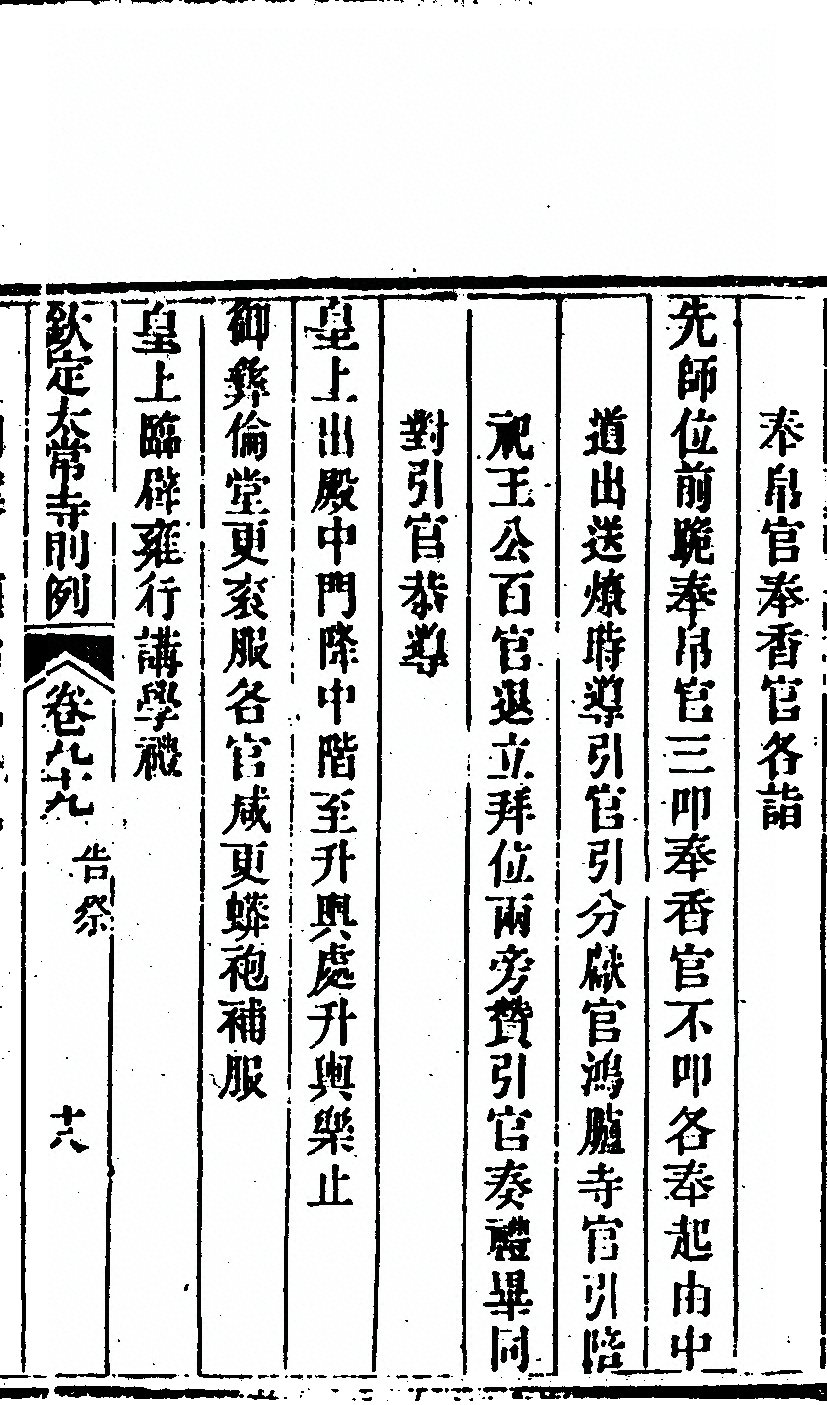 奉帛官奉香官各詣
先師位前跪奉帛官三叩奉香官不叩各奉起由中
道出送燎時導引官引分獻官鴻臚寺官引陪
祀王公百官退立拜位兩旁贊引官奏禮畢同
對引官恭導
皇上出殿中門降中階至升輿處升輿樂止
御彝倫堂更袞服各官咸更蟒袍補服
皇上臨辟雍行講學禮
欽定太常寺則例
卷九十九
告祭
十六